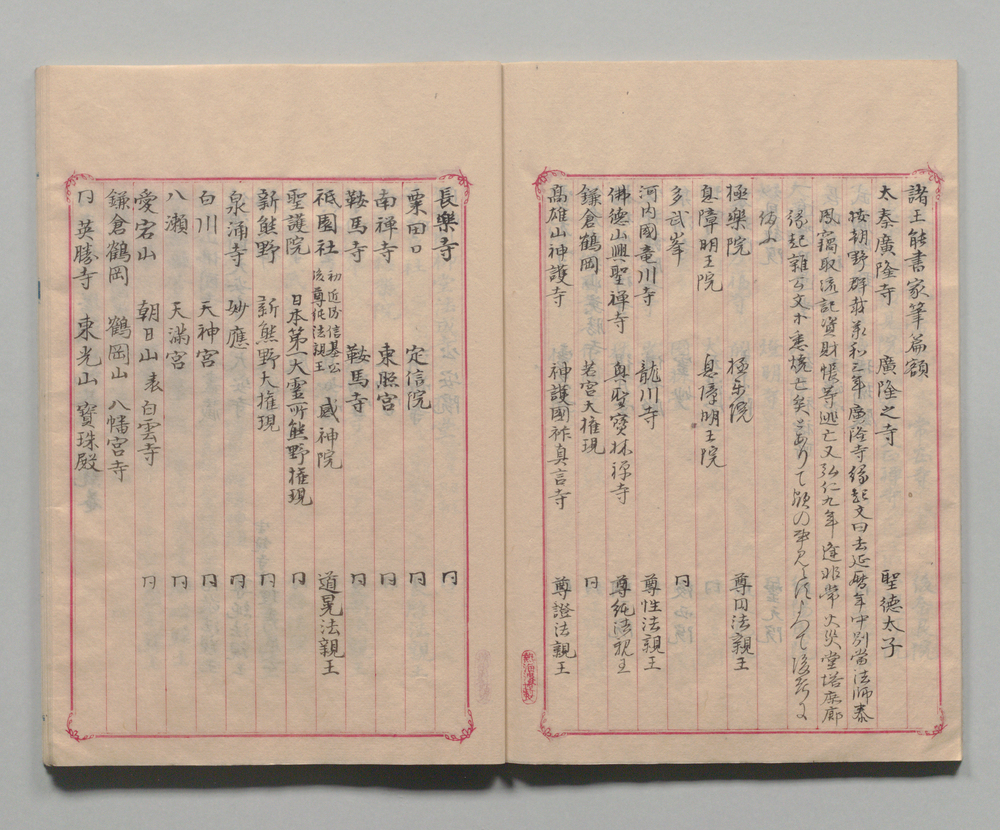 諸王能書家筆篇額
太秦廣隆寺 廣隆之寺 聖德太子
按朝野群載承和三年廣隆寺緣起文曰去延曆年中別當法師泰
鳳竊取流記資財帳等逃亡又弘仁九年逢非常火災堂塔庫廊
緣起雜公文等悉燒亡矣とありて額の
極樂院 極乐院 尊円法親王
息障明王院 息障明王院
多武峯 円
河内國竜川寺 龍川寺 尊性法親王
佛德山興聖禅寺 興聖寶林禅寺 尊純法親王
鎌倉鶴岡 若宮大権現 円
高雄山神護寺 神護國祚真言寺 尊證法親王
長樂寺 円
粟田口 定信院 円
南禅寺 東照宮 円
鞍馬寺 鞍馬寺 円
祇園社 初近衛信基公 後尊純法親王 感神院 道晃法親王
聖護院 日本第一大霊所熊野権現 円
新熊野 新熊野大権現 円
泉涌寺 妙應 円
白川 天神宮 円
八瀬 天滿宮 円
愛宕山 朝日山 表 白雲寺 円
鎌倉鶴岡 鶴岡山 八幡宮寺
円 英勝寺 東光山 寶珠殿